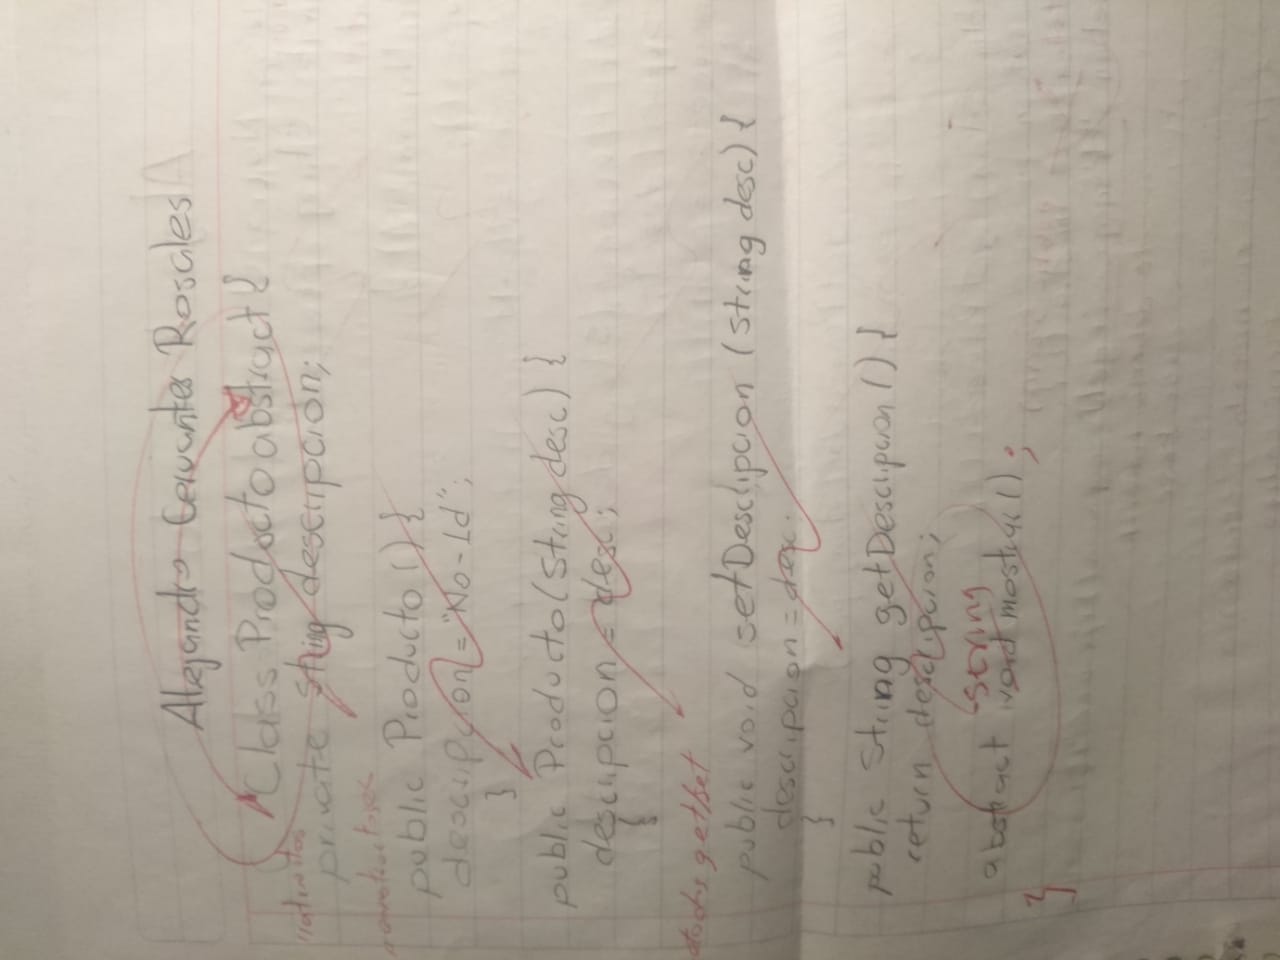 Alejandro Cervantes Rosales
Class Producto abstract {
private String descripcion;
public Producto () {
descripcion = "No-Id";
}
public Producto (String desc) {
descripcion = desc;
{
get/set
public void setDescripcion (String desc) {
descripcion = desc.
}
public String getDescripcion () {
return descripcion;
string
abstract void mostrar ();
}